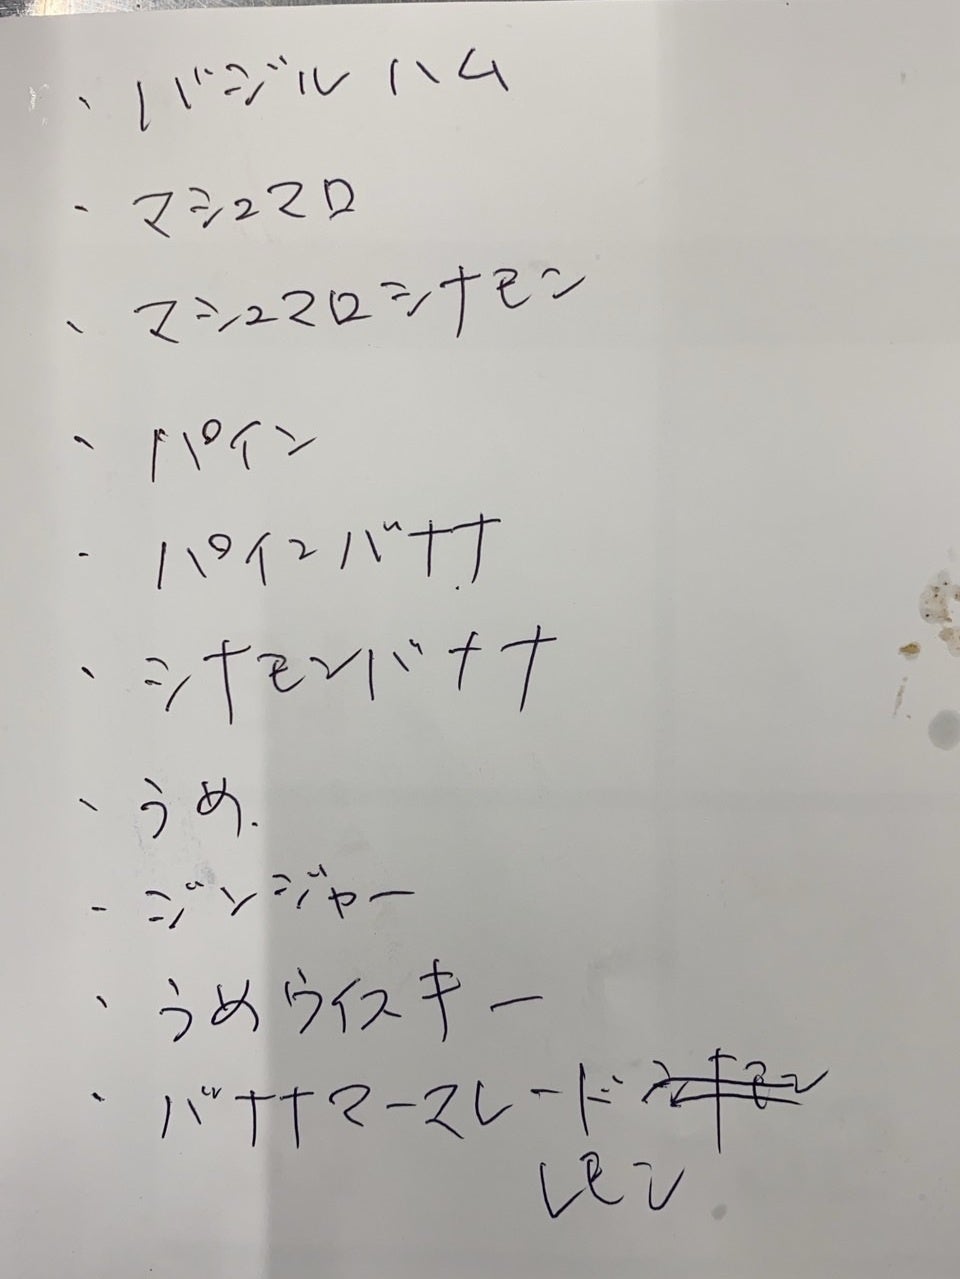 ・バジルハム
・マシュマロ
・マシュマロシナモン
・パイン
・パインバナナ
・シナモンバナナ
・うめ.
・ジンジャー
・うめウイスキー
・バナナマーマレードシナモン
レモン